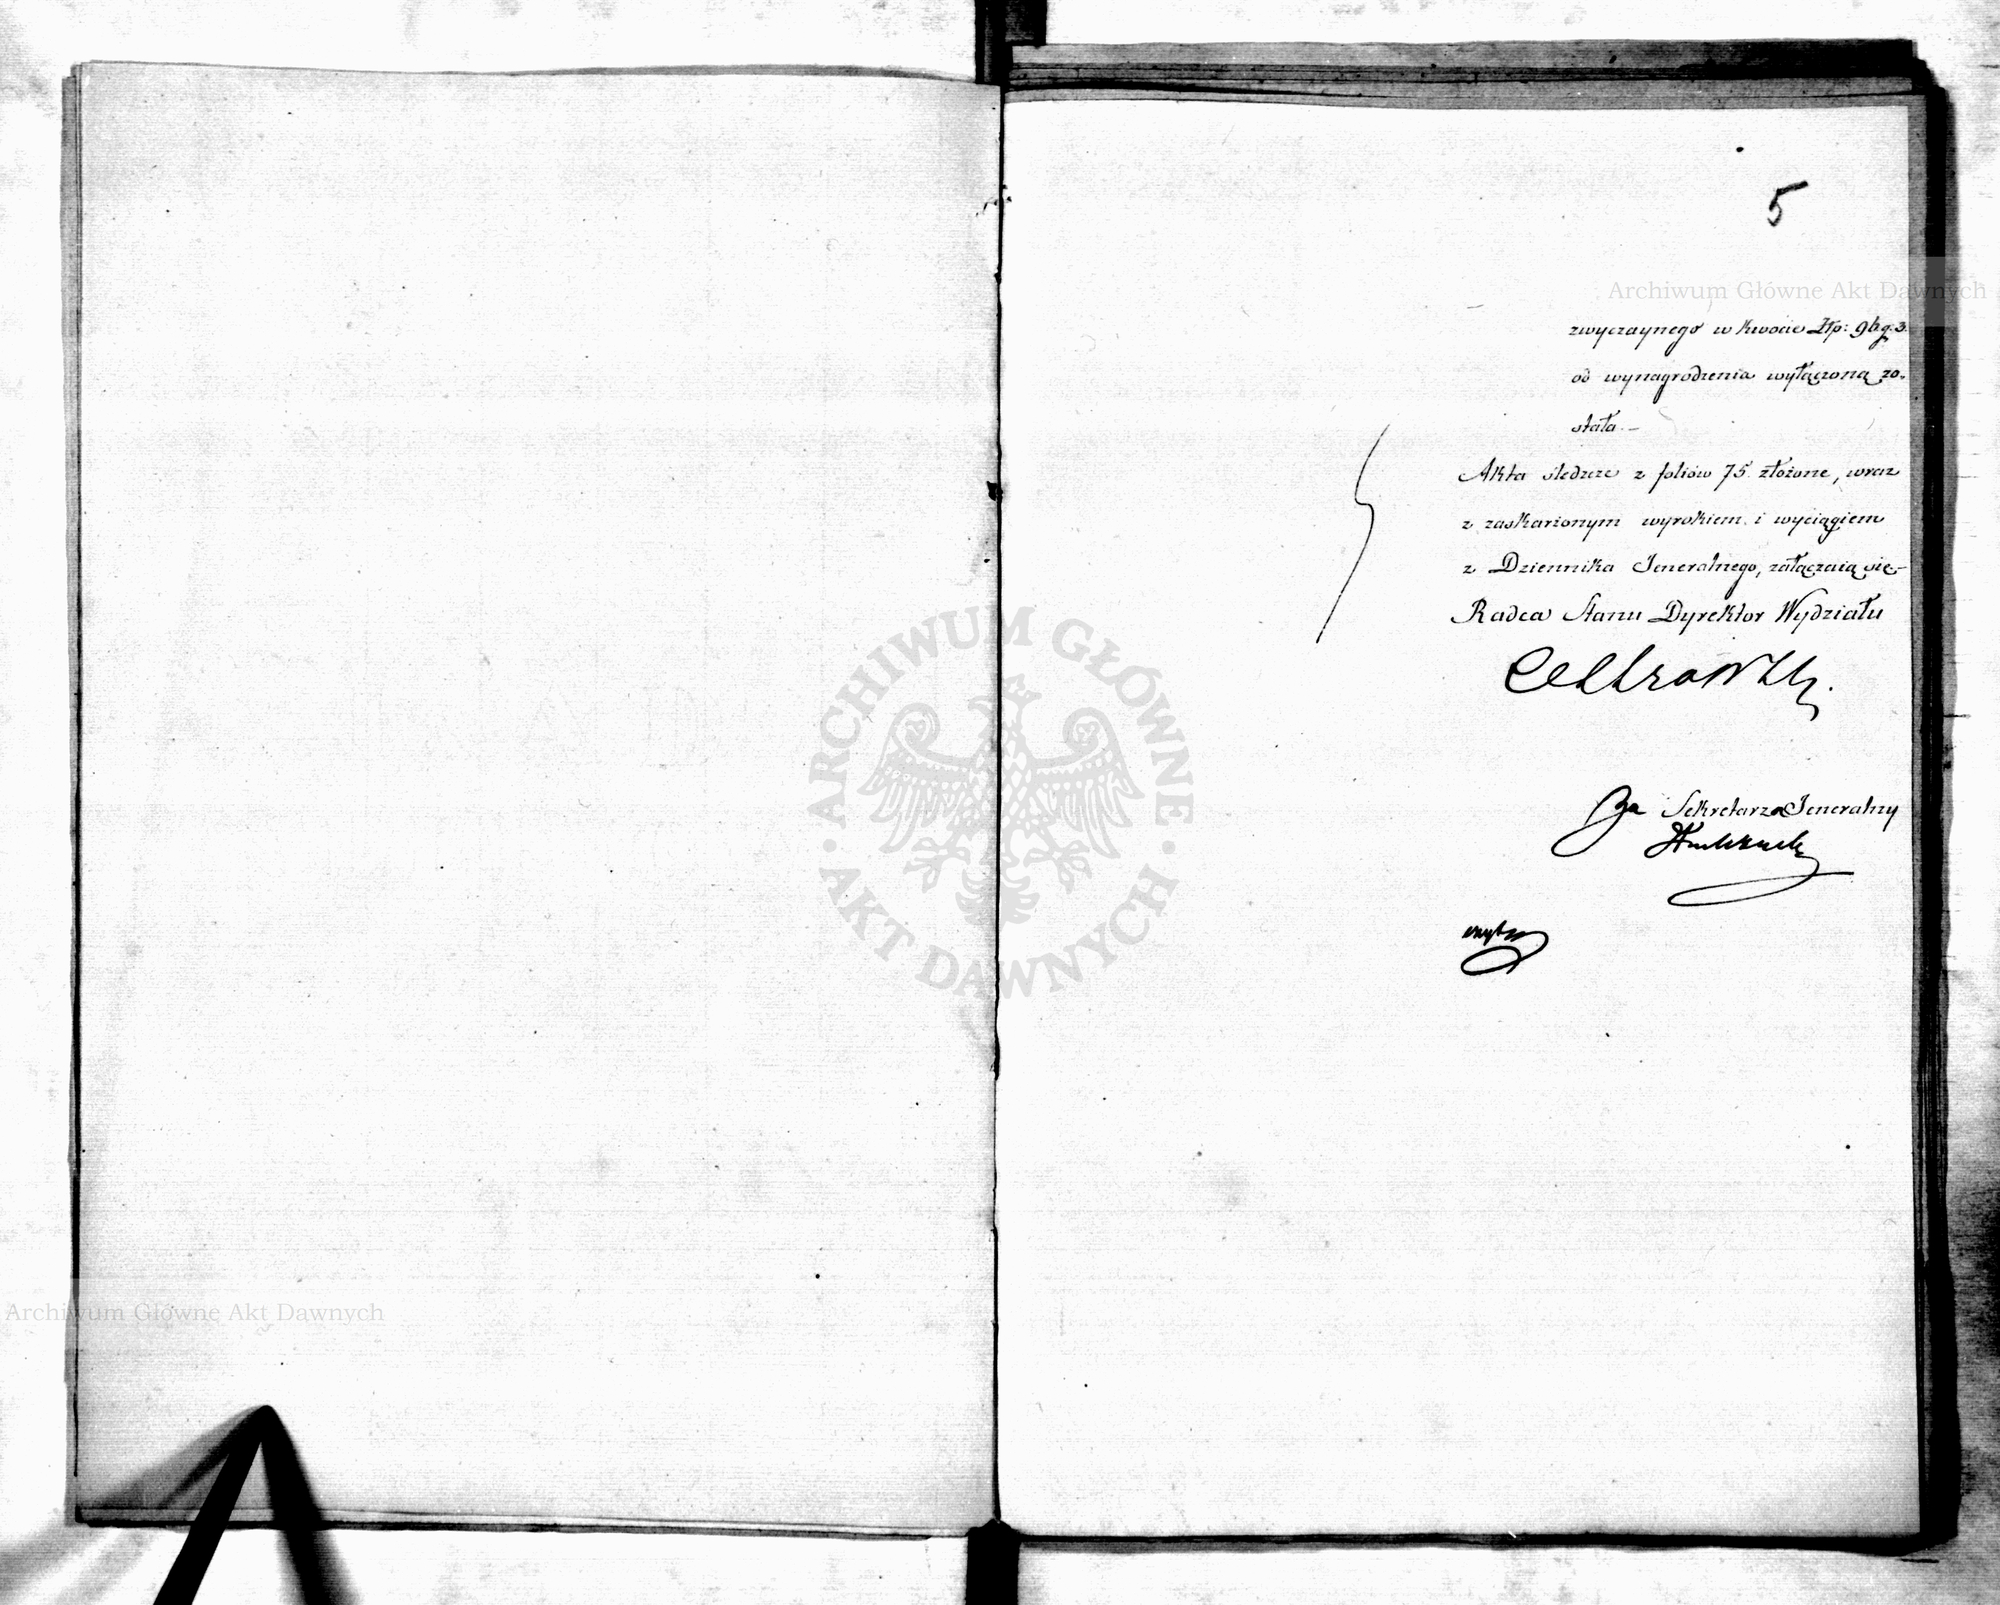 5
Archiwum Główne Akt Dawnych
zwyczaynego w kwocie Złp: g. 3.
od wynagrodzenia wyłączoną zo-
stała.-
Akta śledcze z foliów 75 złożone, wraz
z zaskarżonym wyrokiem i wyciągiem
z Dziennika Jeneralnego, załączaią się-
Radca Stanu Dyrektor Wydziału
Za Sekretarza Jeneralny
ARCHIWUM GŁÓWNE
AKT DAWNYCH
Archiwum Główne Akt Dawnych